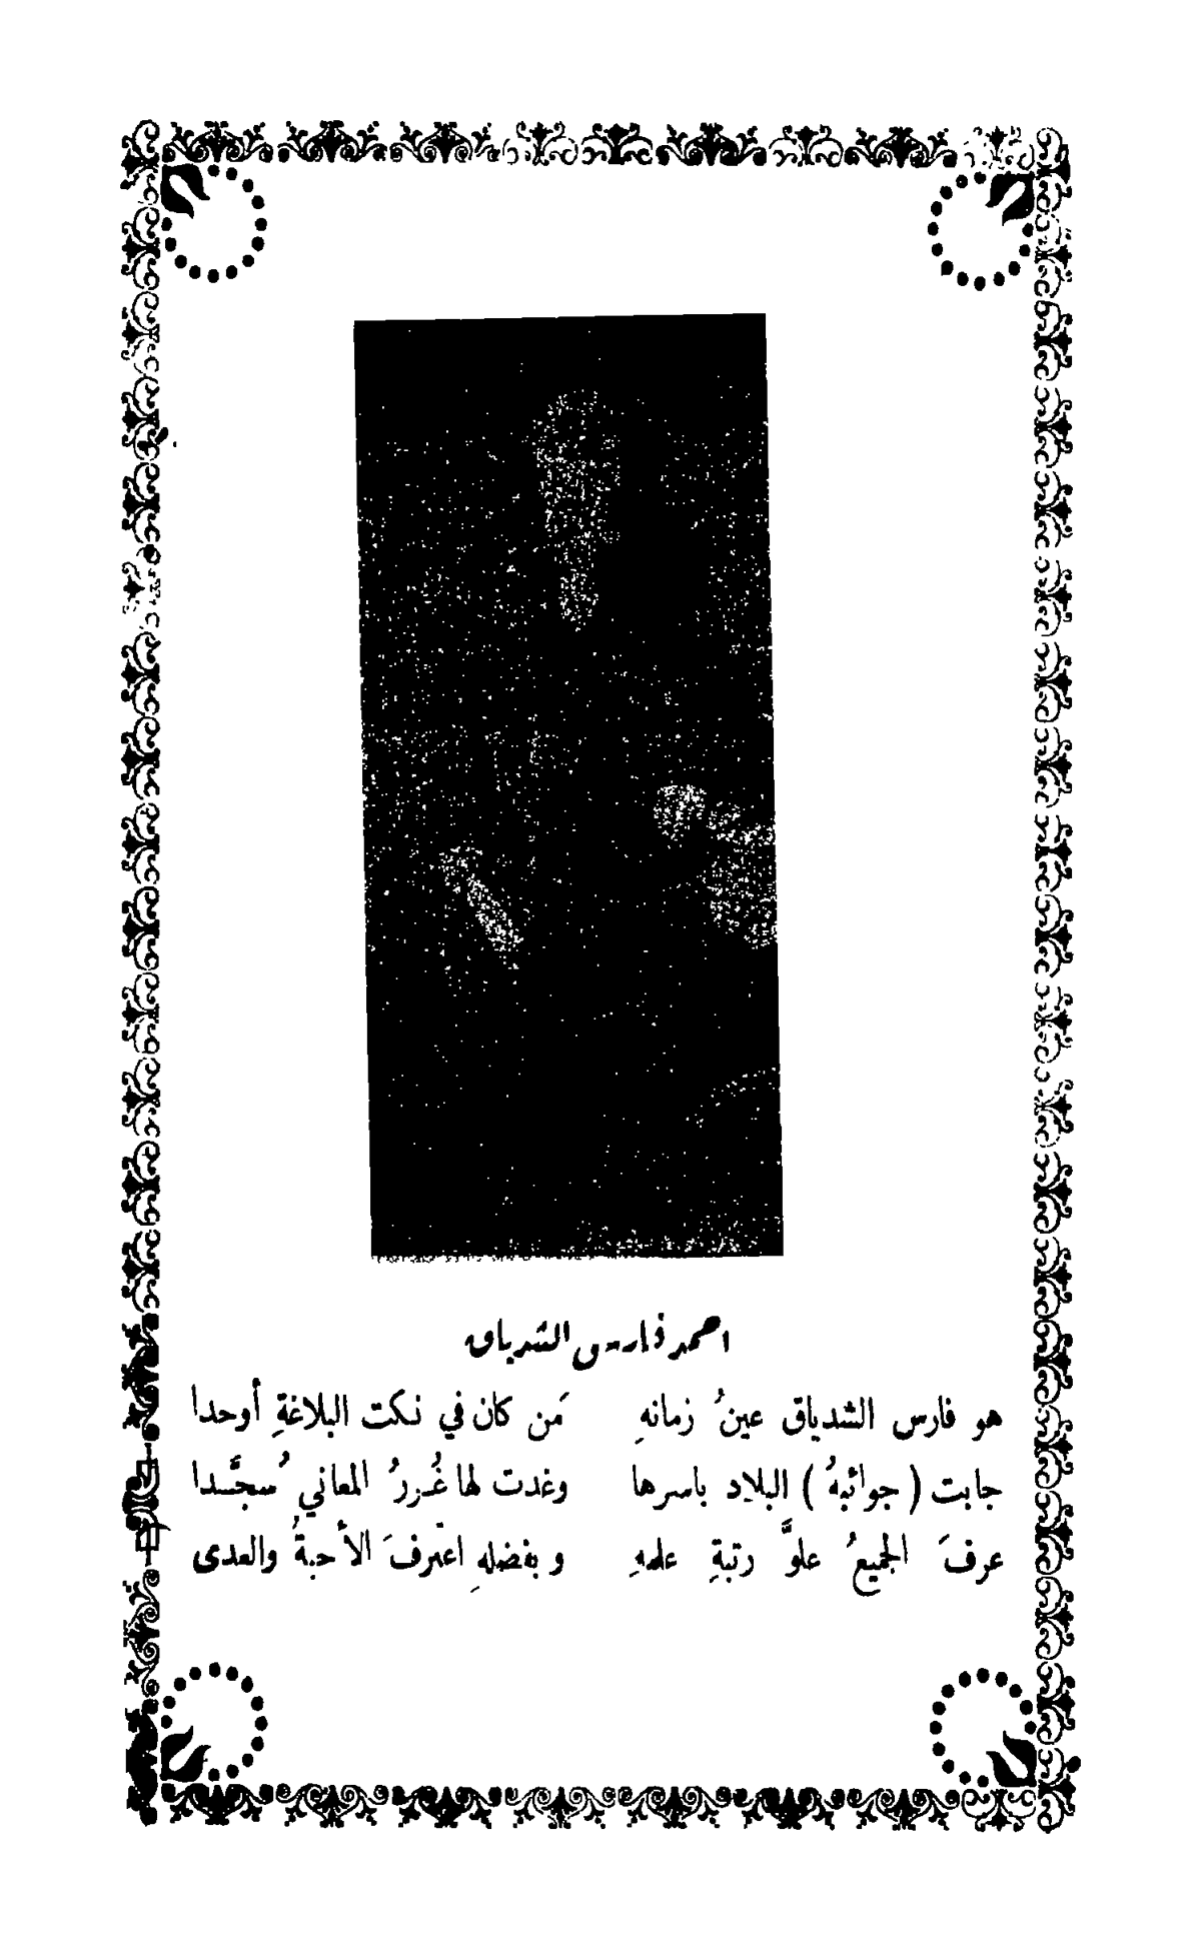 احمد فارس الشدياق
هو فارس الشدياق عينُ زمانهِ مَن كان في نكت البلاغةِ أوحدا
جابت (جوائبهُ) البلاد باسرها وغدت لها غُررُ المعاني سجَّدا
عرفَ الجميعُ علوَّ رتبةِ علمهِ وبفضلهِ اعترفَ الأحبةُ والعدى